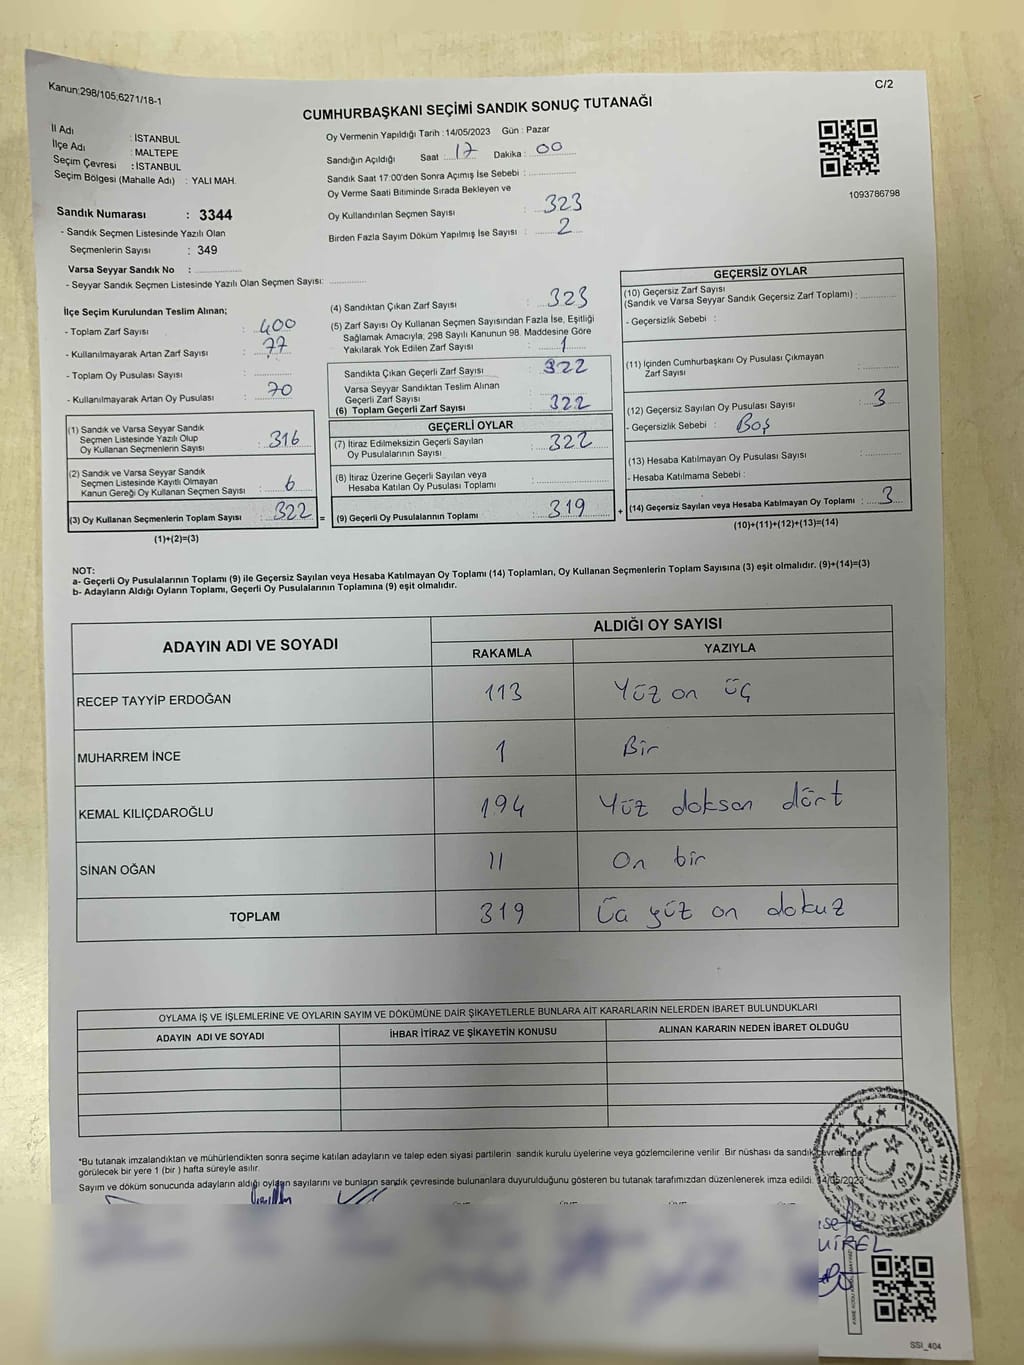 Kanun:298/105,6271/18-1
C/2
CUMHURBAŞKANI SEÇİMİ SANDIK SONUÇ TUTANAĞI
İl Adı : İSTANBUL
İlçe Adı : MALTEPE
Seçim Çevresi : İSTANBUL
Seçim Bölgesi (Mahalle Adı) : YALI MAH.
Sandık Numarası : 3344
- Sandık Seçmen Listesinde Yazılı Olan
Seçmenlerin Sayısı : 349
Varsa Seyyar Sandık No :
- Seyyar Sandık Seçmen Listesinde Yazılı Olan Seçmen Sayısı:
Oy Vermenin Yapıldığı Tarih : 14/05/2023 Gün : Pazar
Sandığın Açıldığı Saat : 17 Dakika : 00
Sandık Saat 17:00'den Sonra Açımış İse Sebebi :
Oy Verme Saati Bitiminde Sırada Bekleyen ve
Oy Kullandırılan Seçmen Sayısı : 323
Birden Fazla Sayım Döküm Yapılmış İse Sayısı : 2
1093786798
İlçe Seçim Kurulundan Teslim Alınan;
- Toplam Zarf Sayısı : 400
- Kullanılmayarak Artan Zarf Sayısı : 77
- Toplam Oy Pusulası Sayısı :
- Kullanılmayarak Artan Oy Pusulası : 70
(1) Sandık ve Varsa Seyyar Sandık
Seçmen Listesinde Yazılı Olup
Oy Kullanan Seçmenlerin Sayısı : 316
(2) Sandık ve Varsa Seyyar Sandık
Seçmen Listesinde Kayıtlı Olmayan
Kanun Gereği Oy Kullanan Seçmen Sayısı : 6
(3) Oy Kullanan Seçmenlerin Toplam Sayısı : 322 =
(1)+(2)=(3)
(4) Sandıktan Çıkan Zarf Sayısı : 323
(5) Zarf Sayısı Oy Kullanan Seçmen Sayısından Fazla İse, Eşitliği
Sağlamak Amacıyla, 298 Sayılı Kanunun 98. Maddesine Göre
Yakılarak Yok Edilen Zarf Sayısı : 1
Sandıkta Çıkan Geçerli Zarf Sayısı : 322
Varsa Seyyar Sandıktan Teslim Alınan
Geçerli Zarf Sayısı :
(6) Toplam Geçerli Zarf Sayısı : 322
GEÇERLİ OYLAR
(7) İtiraz Edilmeksizin Geçerli Sayılan
Oy Pusulalarının Sayısı : 322
(8) İtiraz Üzerine Geçerli Sayılan veya
Hesaba Katılan Oy Pusulası Toplamı :
(9) Geçerli Oy Pusulalarının Toplamı : 319 +
GEÇERSİZ OYLAR
(10) Geçersiz Zarf Sayısı
(Sandık ve Varsa Seyyar Sandık Geçersiz Zarf Toplamı) :
- Geçersizlik Sebebi :
(11) İçinden Cumhurbaşkanı Oy Pusulası Çıkmayan
Zarf Sayısı :
(12) Geçersiz Sayılan Oy Pusulası Sayısı : 3
- Geçersizlik Sebebi : Boş
(13) Hesaba Katılmayan Oy Pusulası Sayısı :
- Hesaba Katılmama Sebebi :
(14) Geçersiz Sayılan veya Hesaba Katılmayan Oy Toplamı : 3
(10)+(11)+(12)+(13)=(14)
NOT:
a- Geçerli Oy Pusulalarının Toplamı (9) ile Geçersiz Sayılan veya Hesaba Katılmayan Oy Toplamı (14) Toplamları, Oy Kullanan Seçmenlerin Toplam Sayısına (3) eşit olmalıdır. (9)+(14)=(3)
b- Adayların Aldığı Oyların Toplamı, Geçerli Oy Pusulalarının Toplamına (9) eşit olmalıdır.
ADAYIN ADI VE SOYADI
ALDIĞI OY SAYISI
RAKAMLA YAZIYLA
RECEP TAYYİP ERDOĞAN 113 Yüz on üç
MUHARREM İNCE 1 Bir
KEMAL KILIÇDAROĞLU 194 Yüz doksan dört
SİNAN OĞAN 11 On bir
TOPLAM 319 Üç yüz on dokuz
OYLAMA İŞ VE İŞLEMLERİNE VE OYLARIN SAYIM VE DÖKÜMÜNE DAİR ŞİKAYETLERLE BUNLARA AİT KARARLARIN NELERDEN İBARET BULUNDUKLARI
ADAYIN ADI VE SOYADI İHBAR İTİRAZ VE ŞİKAYETİN KONUSU ALINAN KARARIN NEDEN İBARET OLDUĞU
*Bu tutanak imzalandıktan ve mühürlendikten sonra seçime katılan adayların ve talep eden siyasi partilerin sandık kurulu üyelerine veya gözlemcilerine verilir. Bir nüshası da sandık çevresinde
görülecek bir yere 1 (bir ) hafta süreyle asılır.
Sayım ve döküm sonucunda adayların aldığı oyların sayılarını ve bunların sandık çevresinde bulunanlara duyurulduğunu gösteren bu tutanak tarafımızdan düzenlenerek imza edildi. 14/05/2023
1923
SSI_404